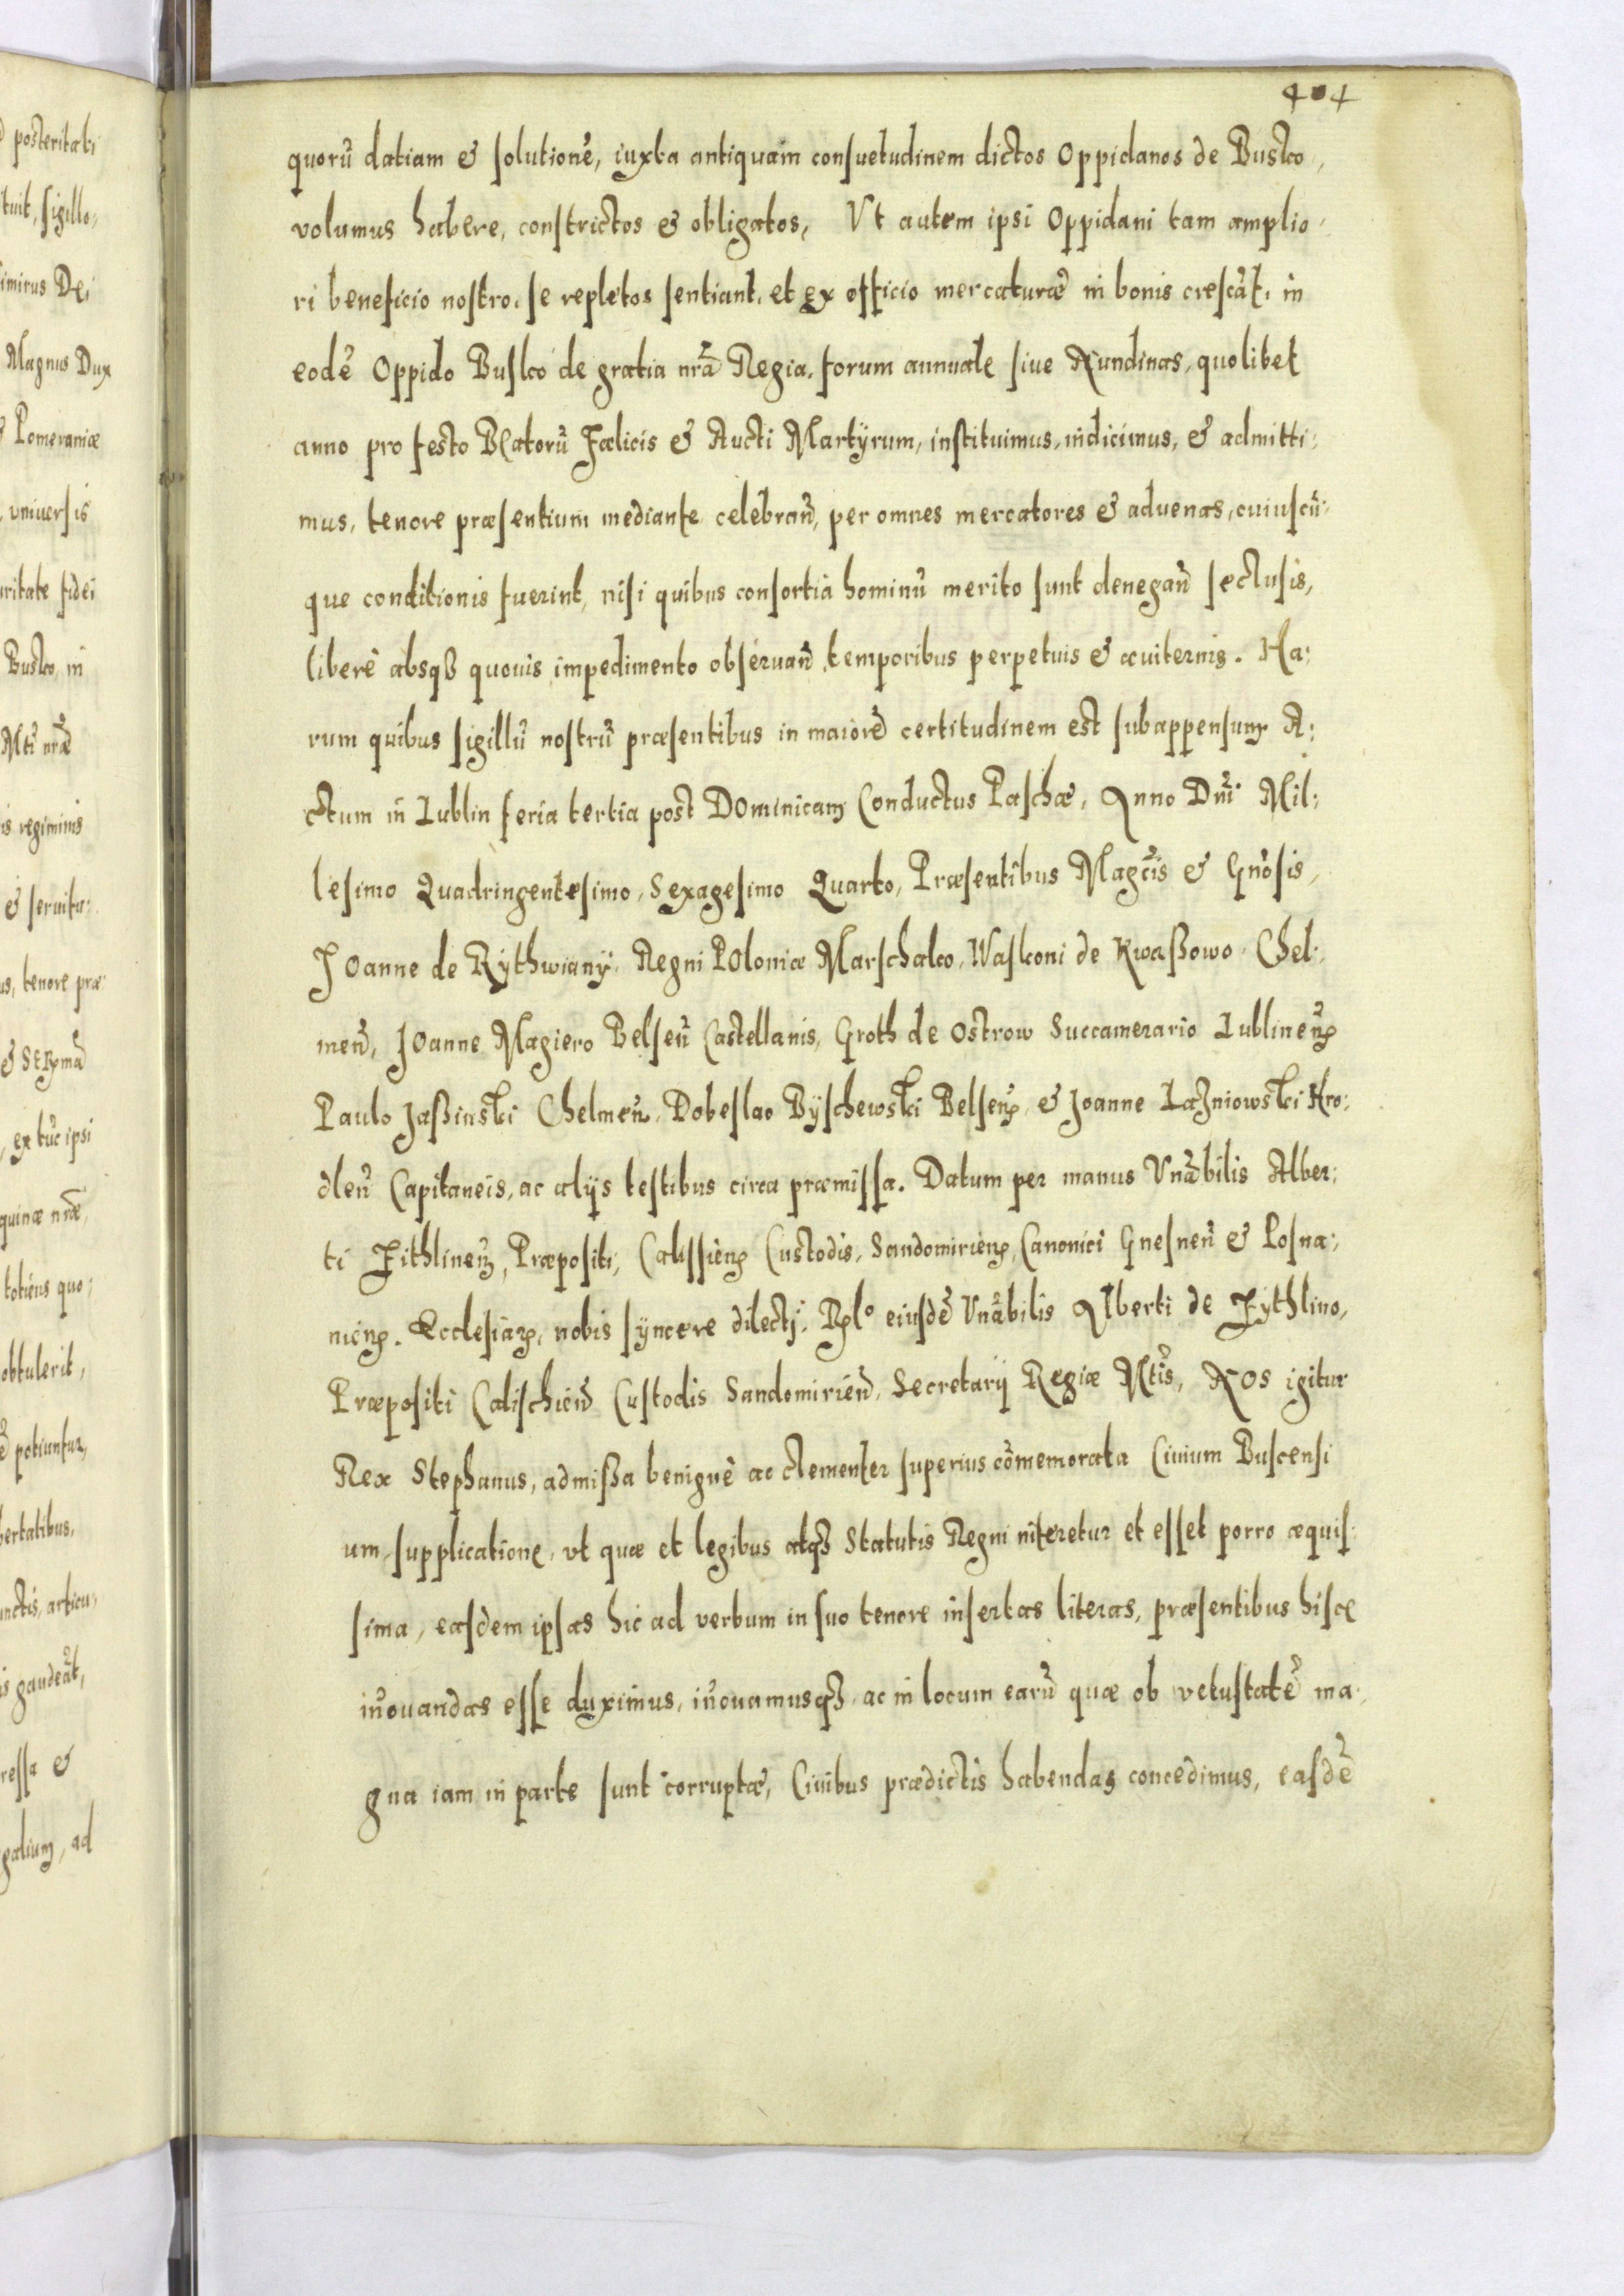 404
quorũ datiam & solutionẽ, iuxta antiquam consuetudinem dictos Oppidanos de Busko,
volumus habere, constrictos & obligatos, Vt autem ipsi Oppidani tam amplio:
ri beneficio nostro, se repletos sentiant, et ex officio mercaturæ in bonis crescãt, in
eodẽ Oppido Busko de gratia nrã Regia, forum annuale siue Nundinas, quolibet
anno pro festo Beatorũ Fælicis & Aucti Martÿrum, instituimus, indicimus, & admitti:
mus, tenore præsentium mediante celebrañ, per omnes mercatores & aduenas, cuiuscũ:
que conditionis fuerint, nisi quibus consortia hominũ merito sunt denegañ seclusis,
liberè absqȝ quouis impedimento obseruañ temporibus perpetuis & æuiternis. Ha:
rum quibus sigillũ nostrũ præsentibus in maiorẽ certitudinem est subappensum A:
ctum in Lublin feria tertia post Dominicam Conductus Paschæ, Anno Dnĩ Mil:
lesimo Quadringentesimo, Sexagesimo Quarto, Præsentibus Magcĩs & Gnõsis,
Joanne de Rythwianÿ, Regni Poloniæ Marschalco, Waskoni de Kwaßowo Chel:
meñ, Joanne Magiero Belseñ Castellanis, Groth de Ostrow Succamerario Lublineñ
Paulo Jaßinski Chelmeñ, Dobeslao Bÿschewski Belseñ & Joanne Lazniowski Kro:
dleñ Capitaneis, ac alijs testibus circa præmissa. Datum per manus Vnãbilis Alber:
ti Zithlineñ, Præpositi, Calissieñ Custodis, Sandomirieñ, Canonici Gnesneñ & Posna:
nieñ. Ecclesiarȝ, nobis sÿncere dilecti, Rlo eiusdẽ Vnãbilis Alberti de Zÿthlino,
Præpositi Calischieñ Custodis Sandomirieñ, Secretarij Regiæ Mtĩs, Nos igitur
Rex Stephanus, admißa benignè ac clementer superius cõmemorata Ciuium Buscensi
um, supplicatione, vt quæ et legibus atqȝ Statutis Regni niteretur et esset porro æquis:
sima, easdem ipsas hic ad verbum in suo tenore insertas literas, præsentibus hisce
iñouandas esse duximus, iñouamusqȝ ac in locum earũ quæ ob vetustatẽ ma:
gna iam in parte sunt corruptæ, Ciuibus prædictis habendas concedimus, easdẽ